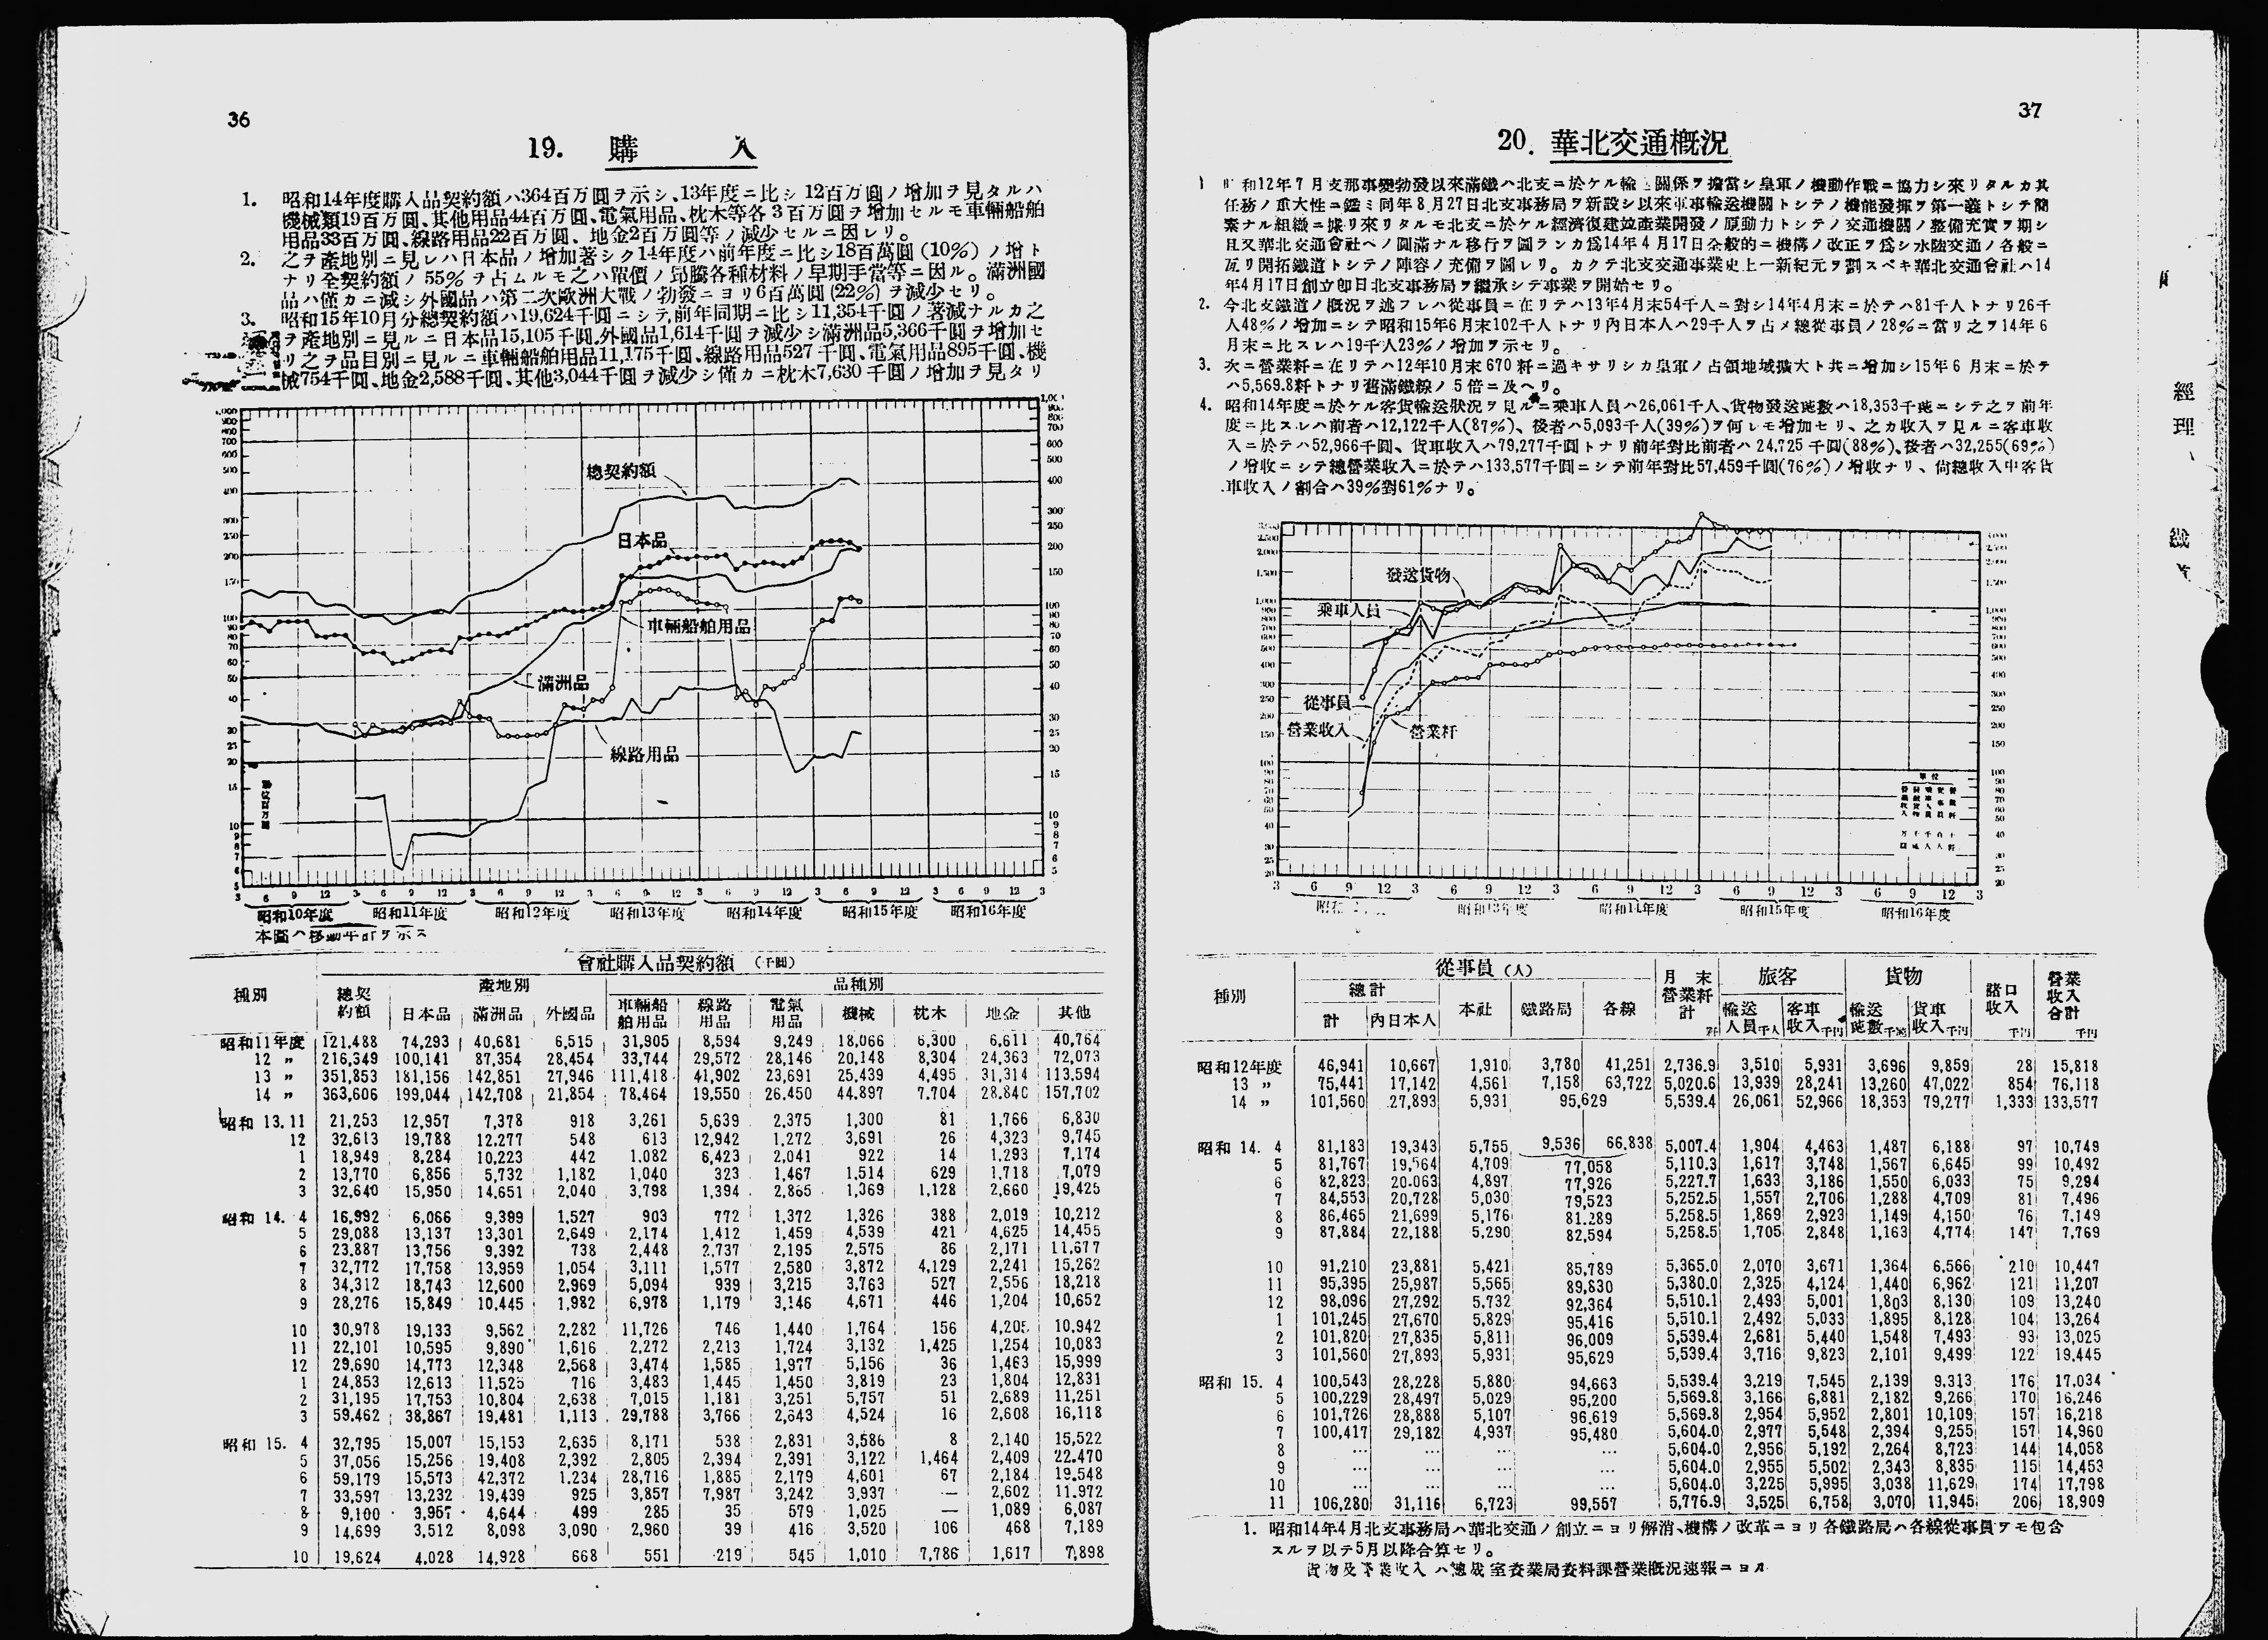 36
19. 購入
1. 昭和14年度購入品契約額ハ364百万圓ヲ示シ、13年度ニ比シ12百万圓ノ增加ヲ見タルハ
機械類19百万圓、其他用品44百万圓、電氣用品、枕木等各3百万圓ヲ增加セルモ車輛船舶
用品33百万圓、線路用品22百万圓、地金2百万圓等ノ減少セルニ因レリ。
2. 之ヲ產地別ニ見レハ日本品ノ增加著シク14年度ハ前年度ニ比シ18百萬圓(10%)ノ增ト
ナリ全契約額ノ55%ヲ占ムルモ之ハ單價ノ昻騰各種材料ノ早期手當等ニ因ル。滿洲國
品ハ僅カニ減シ外國品ハ第二次歐洲大戰ノ勃發ニヨリ6百萬圓(22%)ヲ減少セリ。
3. 昭和15年10月分總契約額ハ19,624千圓ニシテ,前年同期ニ比シ11,354千圓ノ著減ナルカ之
ヲ產地別ニ見ルニ日本品15,105千圓.外國品1,614千圓ヲ減少シ滿洲品5,366千圓ヲ增加セ
リ之ヲ品目別ニ見ルニ車輛船舶用品11,175千圓、線路用品527千圓、電氣用品895千圓、機
械754千圓、地金2,588千圓、其他3,044千圓ヲ減少シ僅カニ枕木7,630千圓ノ增加ヲ見タリ
總契約額
日本品
車輛船舶用品
滿洲品
線路用品
3 6 9 12 3 6 9 12 3 6 9 12 3 6 9 12 3 6 9 12 3 6 9 12 3 6 9 12 3
昭和10年度 昭和11年度 昭和12年度 昭和13年度 昭和14年度 昭和15年度 昭和16年度
本圖ハ移動年計ヲ示ス
會社購入品契約額 (千圓)
種別 總契約額 產地別 品種別
日本品 滿洲品 外國品 車輛船舶用品 線路用品 電氣用品 機械 枕木 地金 其他
昭和11年度 121,488 74,293 40,681 6,515 31,905 8,594 9,249 18,066 6,300 6,611 40,764
12 〃 216,349 100,141 87,354 28,454 33,744 29,572 28,146 20,148 8,304 24,363 72,073
13 〃 351,853 181,156 142,851 27,946 111,418 41,902 23,691 25,439 4,495 31,314 113,594
14 〃 363,606 199,044 142,708 21,854 78,464 19,550 26,450 44,897 7,704 28,840 157,702
昭和 13.11 21,253 12,957 7,378 918 3,261 5,639 2,375 1,300 81 1,766 6,830
12 32,613 19,788 12,277 548 613 12,942 1,272 3,691 26 4,323 9,745
1 18,949 8,284 10,223 442 1,082 6,423 2,041 922 14 1,293 7,174
2 13,770 6,856 5,732 1,182 1,040 323 1,467 1,514 629 1,718 7,079
3 32,640 15,950 14,651 2,040 3,798 1,394 2,865 1,369 1,128 2,660 19,425
昭和 14. 4 16,992 6,066 9,399 1,527 903 772 1,372 1,326 388 2,019 10,212
5 29,088 13,137 13,301 2,649 2,174 1,412 1,459 4,539 421 4,625 14,455
6 23,887 13,756 9,392 738 2,448 2,737 2,195 2,575 86 2,171 11,677
7 32,772 17,758 13,959 1,054 3,111 1,577 2,580 3,872 4,129 2,241 15,262
8 34,312 18,743 12,600 2,969 5,094 939 3,215 3,763 527 2,556 18,218
9 28,276 15,849 10,445 1,982 6,978 1,179 3,146 4,671 446 1,204 10,652
10 30,978 19,133 9,562 2,282 11,726 746 1,440 1,764 156 4,205 10,942
11 22,101 10,595 9,890 1,616 2,272 2,213 1,724 3,132 1,425 1,254 10,083
12 29,690 14,773 12,348 2,568 3,474 1,585 1,977 5,156 36 1,463 15,999
1 24,853 12,613 11,525 716 3,483 1,445 1,450 3,819 23 1,804 12,831
2 31,195 17,753 10,804 2,638 7,015 1,181 3,251 5,757 51 2,689 11,251
3 59,462 38,867 19,481 1,113 29,788 3,766 2,643 4,524 16 2,608 16,118
昭和 15. 4 32,795 15,007 15,153 2,635 8,171 538 2,831 3,586 8 2,140 15,522
5 37,056 15,256 19,408 2,392 2,805 2,394 2,391 3,122 1,464 2,409 22,470
6 59,179 15,573 42,372 1,234 28,716 1,885 2,179 4,601 67 2,184 19,548
7 33,597 13,232 19,439 925 3,857 7,987 3,242 3,937 — 2,602 11,972
8 9,100 3,957 4,644 499 285 35 579 1,025 — 1,089 6,087
9 14,699 3,512 8,098 3,090 2,960 39 416 3,520 106 468 7,189
10 19,624 4,028 14,928 668 551 219 545 1,010 7,786 1,617 7,898
37
20. 華北交通概況
1 昭和12年7月支那事變勃發以來滿鐵ハ北支ニ於ケル輸送關係ヲ擔當シ皇軍ノ機動作戰ニ協力シ來リタルカ其
任務ノ重大性ニ鑑ミ同年8月27日北支事務局ヲ新設シ以來軍事輸送機關トシテノ機能發揮ヲ第一義トシテ簡
素ナル組織ニ據リ來リタルモ北支ニ於ケル經濟復建竝產業開發ノ原動力トシテノ交通機關ノ整備充實ヲ期シ
且又華北交通會社ヘノ圓滿ナル移行ヲ圖ランカ爲14年4月17日全般的ニ機構ノ改正ヲ爲シ水陸交通ノ各般ニ
亙リ開拓鐵道トシテノ陣容ノ充備ヲ圖レリ。カクテ北支交通事業史上一新紀元ヲ劃スベキ華北交通會社ハ14
年4月17日創立卽日北支事務局ヲ繼承シテ事業ヲ開始セリ。
2. 今北支鐵道ノ概況ヲ述フレハ從事員ニ在リテハ13年4月末54千人ニ對シ14年4月末ニ於テハ81千人トナリ26千
人48%ノ增加ニシテ昭和15年6月末102千人トナリ內日本人ハ29千人ヲ占メ總從事員ノ28%ニ當リ之ヲ14年6
月末ニ比スレハ19千人23%ノ增加ヲ示セリ。
3. 次ニ營業粁ニ在リテハ12年10月末670粁ニ過キサリシカ皇軍ノ占領地域擴大ト共ニ增加シ15年6月末ニ於テ
ハ5,569.8粁トナリ舊滿鐵線ノ5倍ニ及ヘリ。
4. 昭和14年度ニ於ケル客貨輸送狀況ヲ見ルニ乘車人員ハ26,061千人、貨物發送瓲數ハ18,353千瓲ニシテ之ヲ前年
度ニ比スレハ前者ハ12,122千人(87%)、後者ハ5,093千人(39%)ヲ何レモ增加セリ、之カ收入ヲ見ルニ客車收
入ニ於テハ52,966千圓、貨車收入ハ79,277千圓トナリ前年對比前者ハ24,725千圓(88%)、後者ハ32,255(69%)
ノ增收ニシテ總營業收入ニ於テハ133,577千圓ニシテ前年對比57,459千圓(76%)ノ增收ナリ、尙總收入中客貨
車收入ノ割合ハ39%對61%ナリ。
發送貨物
乘車人員
從事員
營業收入
營業粁
單位
3 6 9 12 3 6 9 12 3 6 9 12 3 6 9 12 3 6 9 12 3
昭和13年度 昭和14年度 昭和15年度 昭和16年度
種別 從事員(人) 月末營業粁計 旅客 貨物 諸口收入 營業收入合計
總計 本社 鐵路局 各線 輸送人員千人 客車收入千円 輸送瓲數千瓲 貨車收入千円
計 內日本人 粁 千円 千円
昭和12年度 46,941 10,667 1,910 3,780 41,251 2,736.9 3,510 5,931 3,696 9,859 28 15,818
13 〃 75,441 17,142 4,561 7,158 63,722 5,020.6 13,939 28,241 13,260 47,022 854 76,118
14 〃 101,560 27,893 5,931 95,629 5,539.4 26,061 52,966 18,353 79,277 1,333 133,577
昭和 14. 4 81,183 19,343 5,755 9,536 66,838 5,007.4 1,904 4,463 1,487 6,188 97 10,749
5 81,767 19,564 4,709 77,058 5,110.3 1,617 3,748 1,567 6,645 99 10,492
6 82,823 20,063 4,897 77,926 5,227.7 1,633 3,186 1,550 6,033 75 9,294
7 84,553 20,728 5,030 79,523 5,252.5 1,557 2,706 1,288 4,709 81 7,496
8 86,465 21,699 5,176 81,289 5,258.5 1,869 2,923 1,149 4,150 76 7,149
9 87,884 22,188 5,290 82,594 5,258.5 1,705 2,848 1,163 4,774 147 7,769
10 91,210 23,881 5,421 85,789 5,365.0 2,070 3,671 1,364 6,566 210 10,447
11 95,395 25,987 5,565 89,830 5,380.0 2,325 4,124 1,440 6,962 121 11,207
12 98,096 27,292 5,732 92,364 5,510.1 2,493 5,001 1,803 8,130 109 13,240
1 101,245 27,670 5,829 95,416 5,510.1 2,492 5,033 1,895 8,128 104 13,264
2 101,820 27,835 5,811 96,009 5,539.4 2,681 5,440 1,548 7,493 93 13,025
3 101,560 27,893 5,931 95,629 5,539.4 3,716 9,823 2,101 9,499 122 19,445
昭和 15. 4 100,543 28,228 5,880 94,663 5,539.4 3,219 7,545 2,139 9,313 176 17,034
5 100,229 28,497 5,029 95,200 5,569.8 3,166 6,881 2,182 9,266 170 16,246
6 101,726 28,888 5,107 96,619 5,569.8 2,954 5,952 2,801 10,109 157 16,218
7 100,417 29,182 4,937 95,480 5,604.0 2,977 5,548 2,394 9,255 157 14,960
8 … … … … 5,604.0 2,956 5,192 2,264 8,723 144 14,058
9 … … … … 5,604.0 2,955 5,502 2,343 8,835 115 14,453
10 … … … … 5,604.0 3,225 5,995 3,038 11,629 174 17,798
11 106,280 31,116 6,723 99,557 5,776.9 3,525 6,758 3,070 11,945 206 18,909
1. 昭和14年4月北支事務局ハ華北交通ノ創立ニヨリ解消、機構ノ改革ニヨリ各鐵路局ハ各線從事員ヲモ包含
スルヲ以テ5月以降合算セリ。
經理